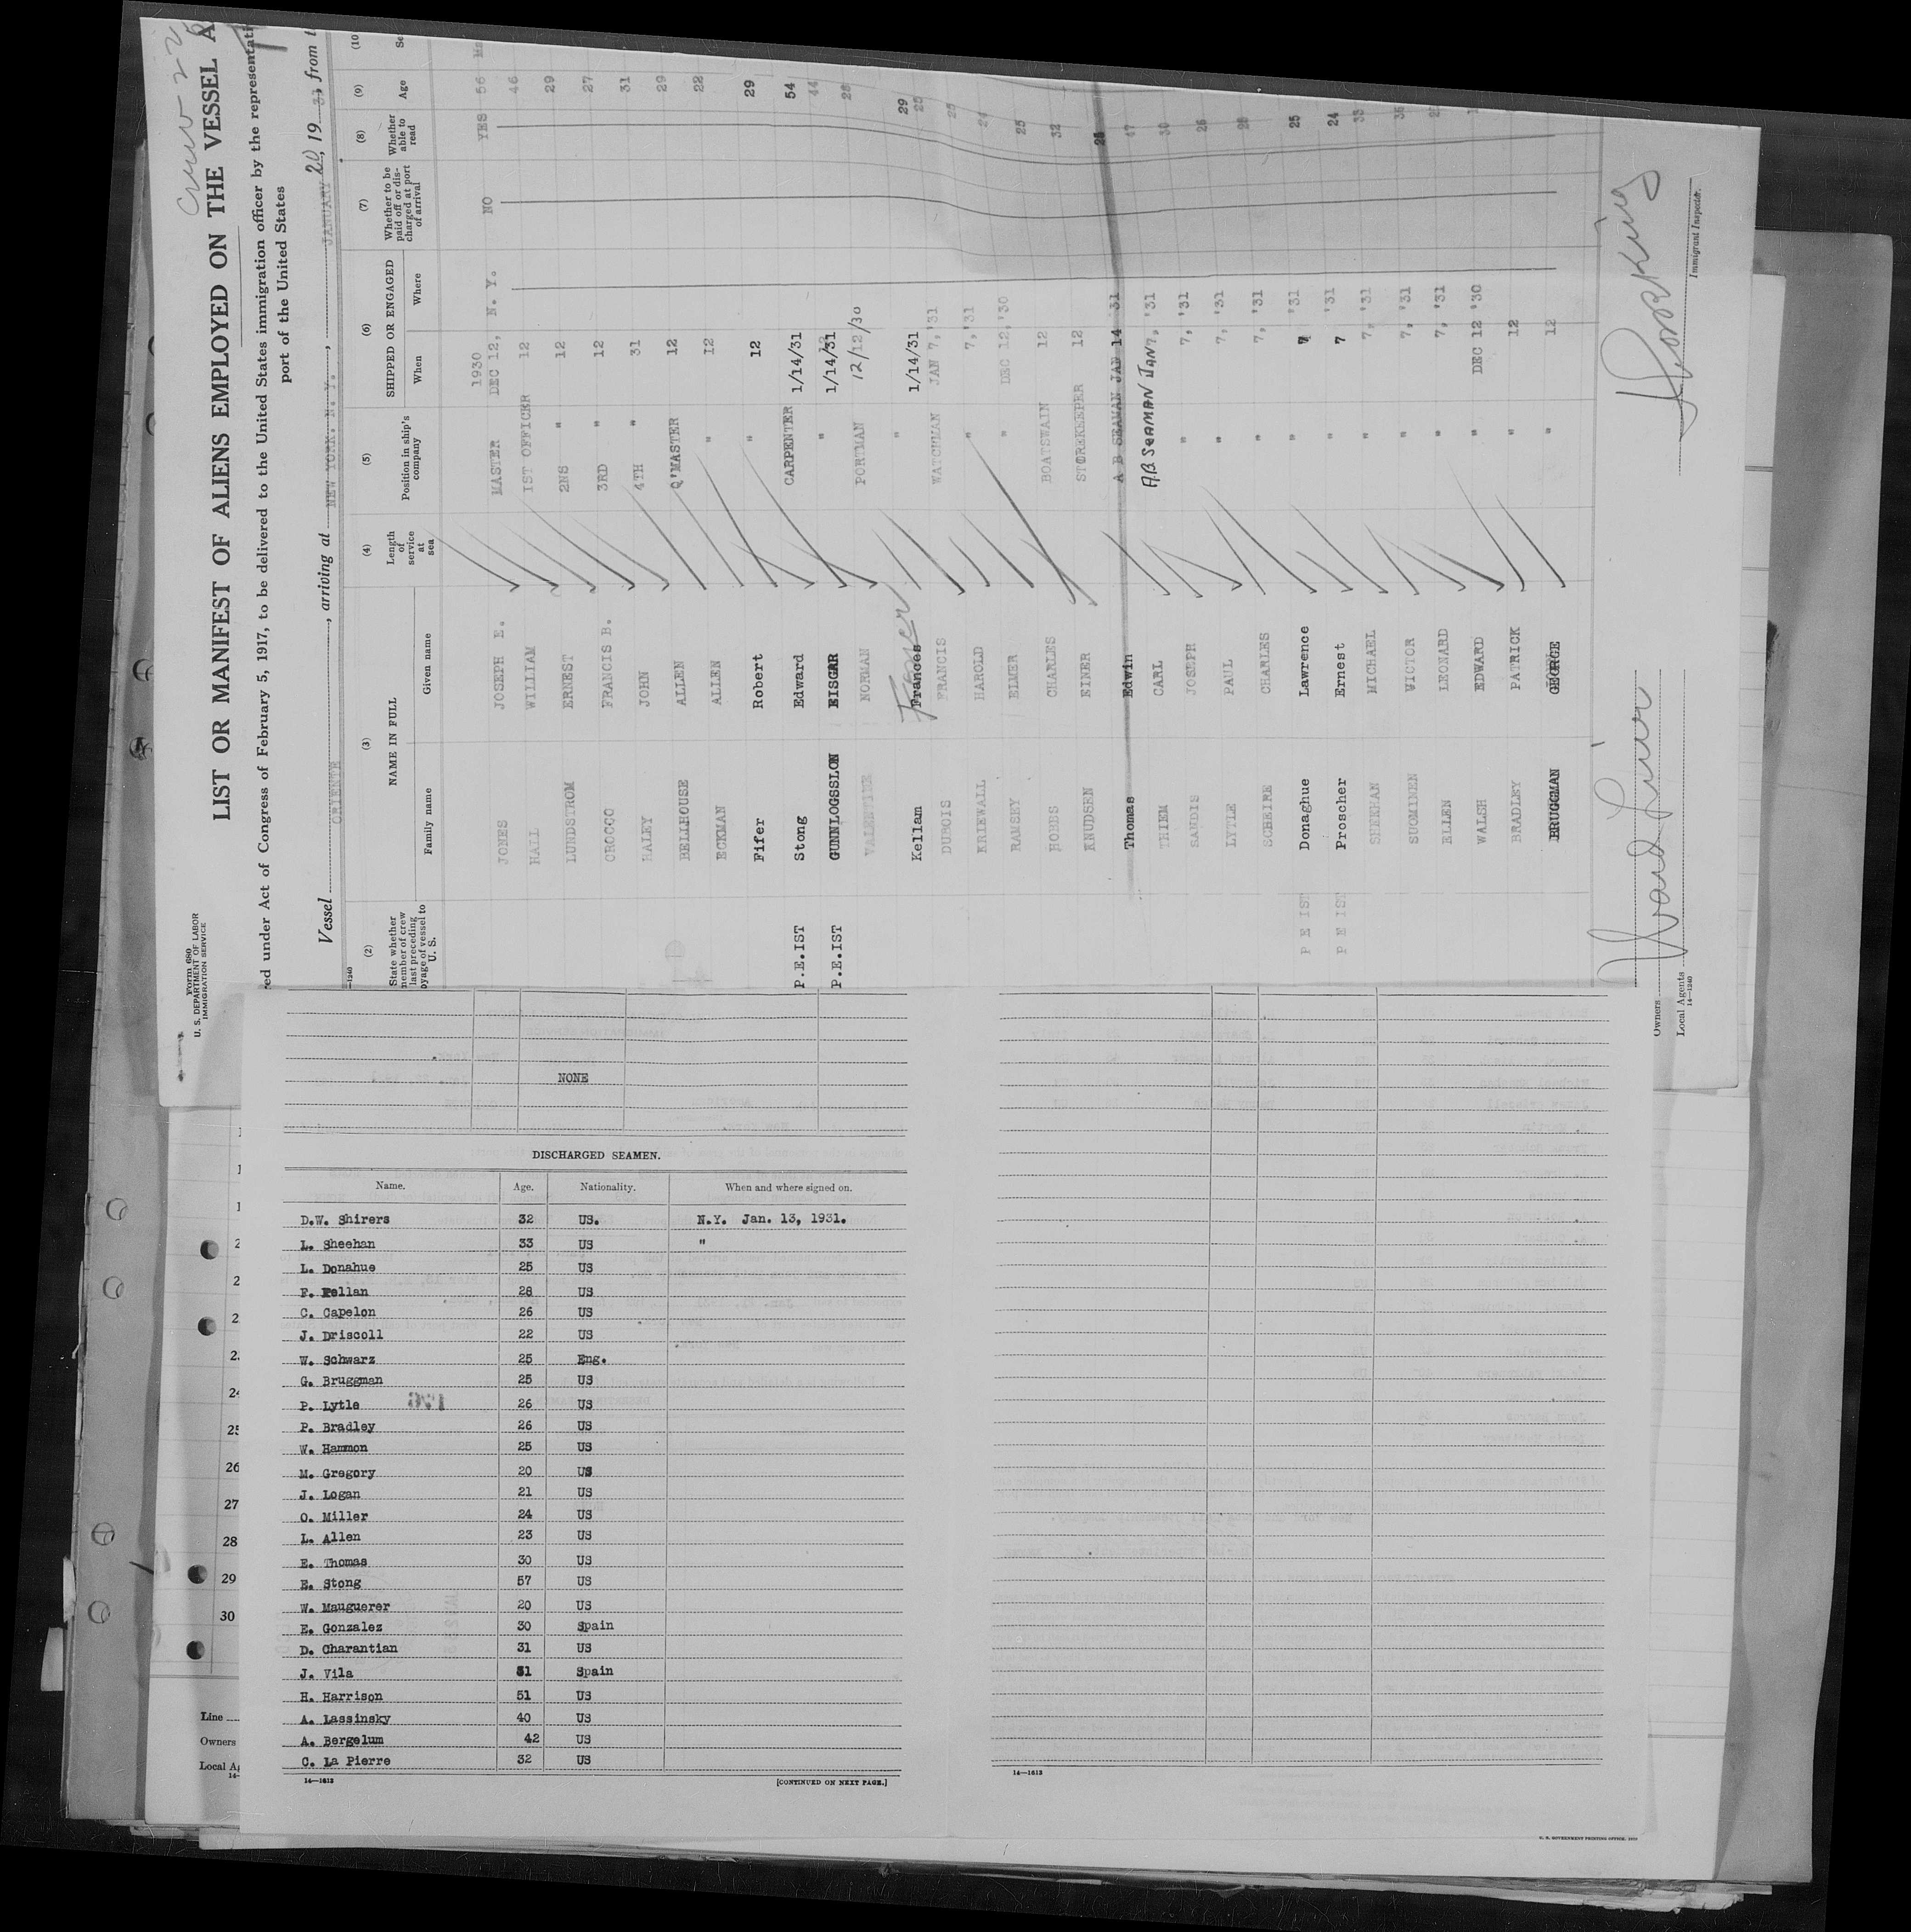 Crew 22
Form 680
U. S. DEPARTMENT OF LABOR
IMMIGRATION SERVICE
LIST OR MANIFEST OF ALIENS EMPLOYED ON THE VESSEL A
ed under Act of Congress of February 5, 1917, to be delivered to the United States immigration officer by the representati
port of the United States
Vessel ORIENTE, arriving at NEW YORK. N. Y., JANUARY 20, 1931, from
14—1240
(2) (3) (4) (5) (6) (7) (8) (9) (10
State whether member of crew last preceding voyage of vessel to U. S.
NAME IN FULL
Family name Given name
Length of service at sea
Position in ship's company
SHIPPED OR ENGAGED
When Where
Whether to be paid off or discharged at port of arrival
Whether able to read
Age
Se
1930
JONES JOSEPH E. MASTER DEC 12, N. Y. NO YES 56
HALL WILLIAM 1ST OFFICER 12 46
LUNDSTROM ERNEST 2NS " 12 29
CROCCO FRANCIS B. 3RD " 12 27
HALEY JOHN 4TH " 31 31
BELLHOUSE ALLEN Q'MASTER 12 29
ECKMAN ALLEN " 12 22
Fifer Robert " 12 29
P.E.IST Stong Edward CARPENTER 1/14/31 54
P.E.IST GUNNLOGSSLON EISGAR " 1/14/31 44
VALENTINE NORMAN PORTMAN 12/12/30 28
Kellam Frances Fraser " 1/14/31 29
DUBOIS FRANCIS WATCHMAN JAN 7,'31 25
KRIEWALL HAROLD " 7,'31 25
RAMSEY ELMER " DEC 12,'30 24
HOBBS CHARLES BOATSWAIN 12 25
KNUDSEN EINER STOREKEEPER 12 32
Thomas Edwin A B SEAMAN JAN 14 '31 28
THIEM CARL AB SEAMAN JAN 7, '31 47
SANDIS JOSEPH " 7, '31 30
LYTLE PAUL " 7, '31 26
SCHEIRE CHARLES " 7, '31 26
P E IST Donaghue Lawrence " 7 '31 25
P E IST Proscher Ernest " 7 '31 24
SHEEHAN MICHAEL " 7, '31 33
SUOMINEN VICTOR " 7, '31 36
ELLEN LEONARD " 7, '31
WALSH EDWARD " DEC 12 '30
BRADLEY PATRICK " 12
BRUGGMAN GEORGE " 12
Ward Line
Owners
Local Agents
14—1240
Immigrant Inspector.
NONE
DISCHARGED SEAMEN.
Name. Age. Nationality. When and where signed on.
D.W. Shirers 32 US. N.Y. Jan. 13, 1931.
L. Sheehan 33 US "
L. Donahue 25 US
F. Fellan 28 US
C. Capelon 26 US
J. Driscoll 22 US
W. Schwarz 25 Eng.
G. Bruggman 25 US
P. Lytle 26 US
P. Bradley 26 US
W. Hammon 25 US
M. Gregory 20 US
J. Logan 21 US
O. Miller 24 US
L. Allen 23 US
E. Thomas 30 US
E. Stong 57 US
W. Mauguerer 20 US
E. Gonzalez 30 Spain
D. Charantian 31 US
J. Vila 31 Spain
H. Harrison 51 US
A. Lassinsky 40 US
A. Bergelum 42 US
C. La Pierre 32 US
14—1613
[CONTINUED ON NEXT PAGE.]
14—1613
U. S. GOVERNMENT PRINTING OFFICE
24
25
26
27
28
29
30
Line
Owners
Local Ag
14—